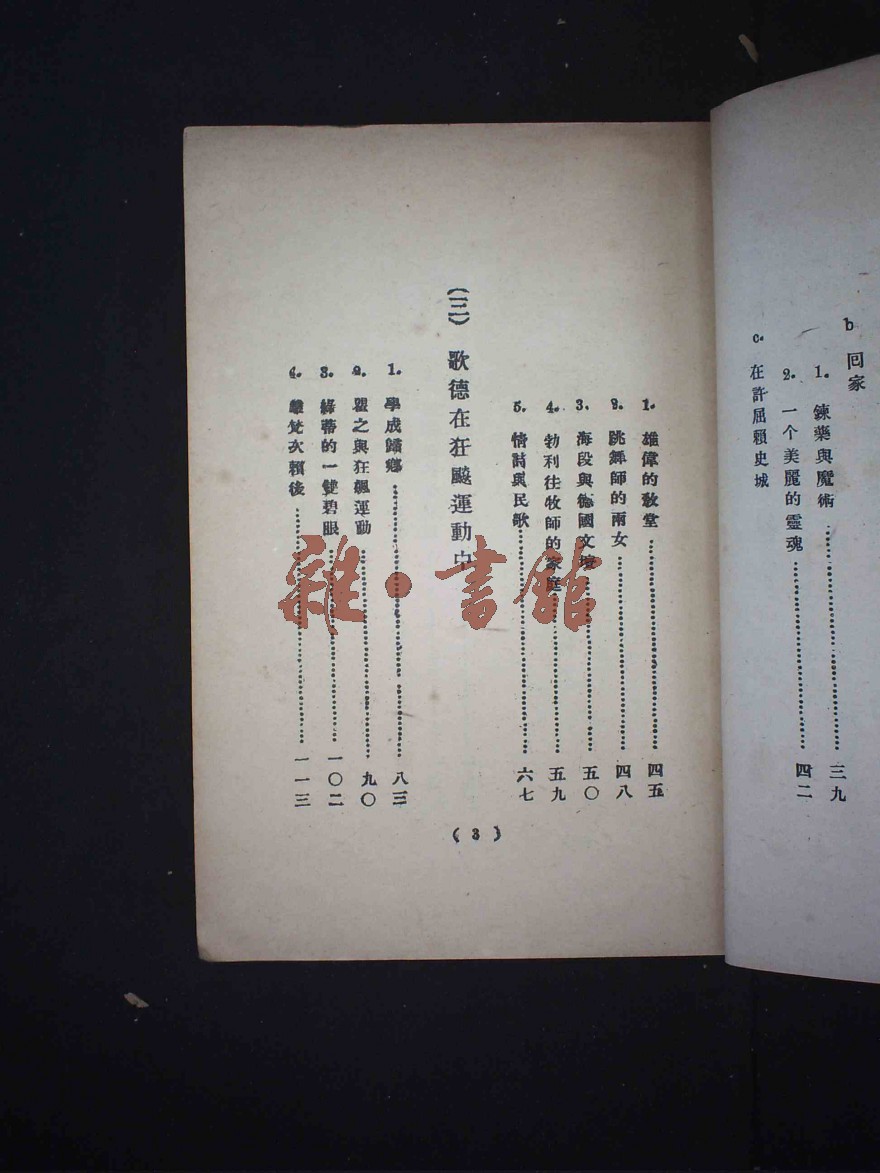 b 回家
1. 鍊藥與魔術 三九
2. 一个美麗的靈魂 四二
c. 在許屈賴史城
1. 雄偉的教堂 四五
2. 跳舞師的兩女 四八
3. 海段與德國文壇 五〇
4. 勃利往牧師的家庭 五九
5. 情詩與民歌 六七
(三) 歌德在狂飈運動中
1. 學成歸鄉 八三
2. 翌之與狂飆運動 九〇
3. 綠蒂的一雙碧眼 一〇二
4. 梵次賴後 一一三
(3)
雜·書館